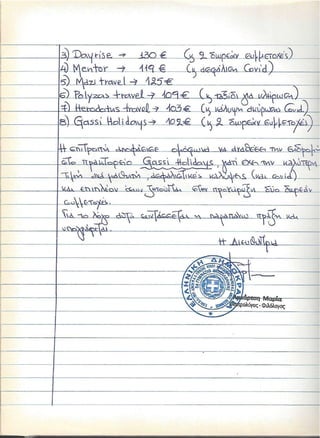 3) Dayrise → 130 € (κ 2 δωρεάν συμμετοχές)
4) Mentor → 119 € (κ ασφάλιση Covid)
5) Mazi travel → 125€
6) Polyzas travel → 109€ (κ ταξίδι για κλήρωση)
7) Herodotus travel → 103€ (κ κάλυψη ακύρωση Covid)
8) Gassi Holidays → 102€ (κ 2 δωρεάν συμμετοχές)
Η επιτροπή αποφάσισε ομόφωνα να αναθέσει την εκδρομή
στο πρακτορείο Gassi Holidays, γιατί έχει την καλύτερη
τιμή ανά μαθητή, ασφαλιστικές καλύψεις (και covid)
και επιπλέον όπως ζητούνταν στην προκήρυξη δύο δωρεάν
συμμετοχές.
Για το λόγο αυτό συντάσσεται η παραπάνω πράξη και
υπογράφεται.
Η Διευθύντρια
ΕΛΛΗΝΙΚΗ ΔΗΜΟΚΡΑΤΙΑ
Μαρία
Φιλόλογος